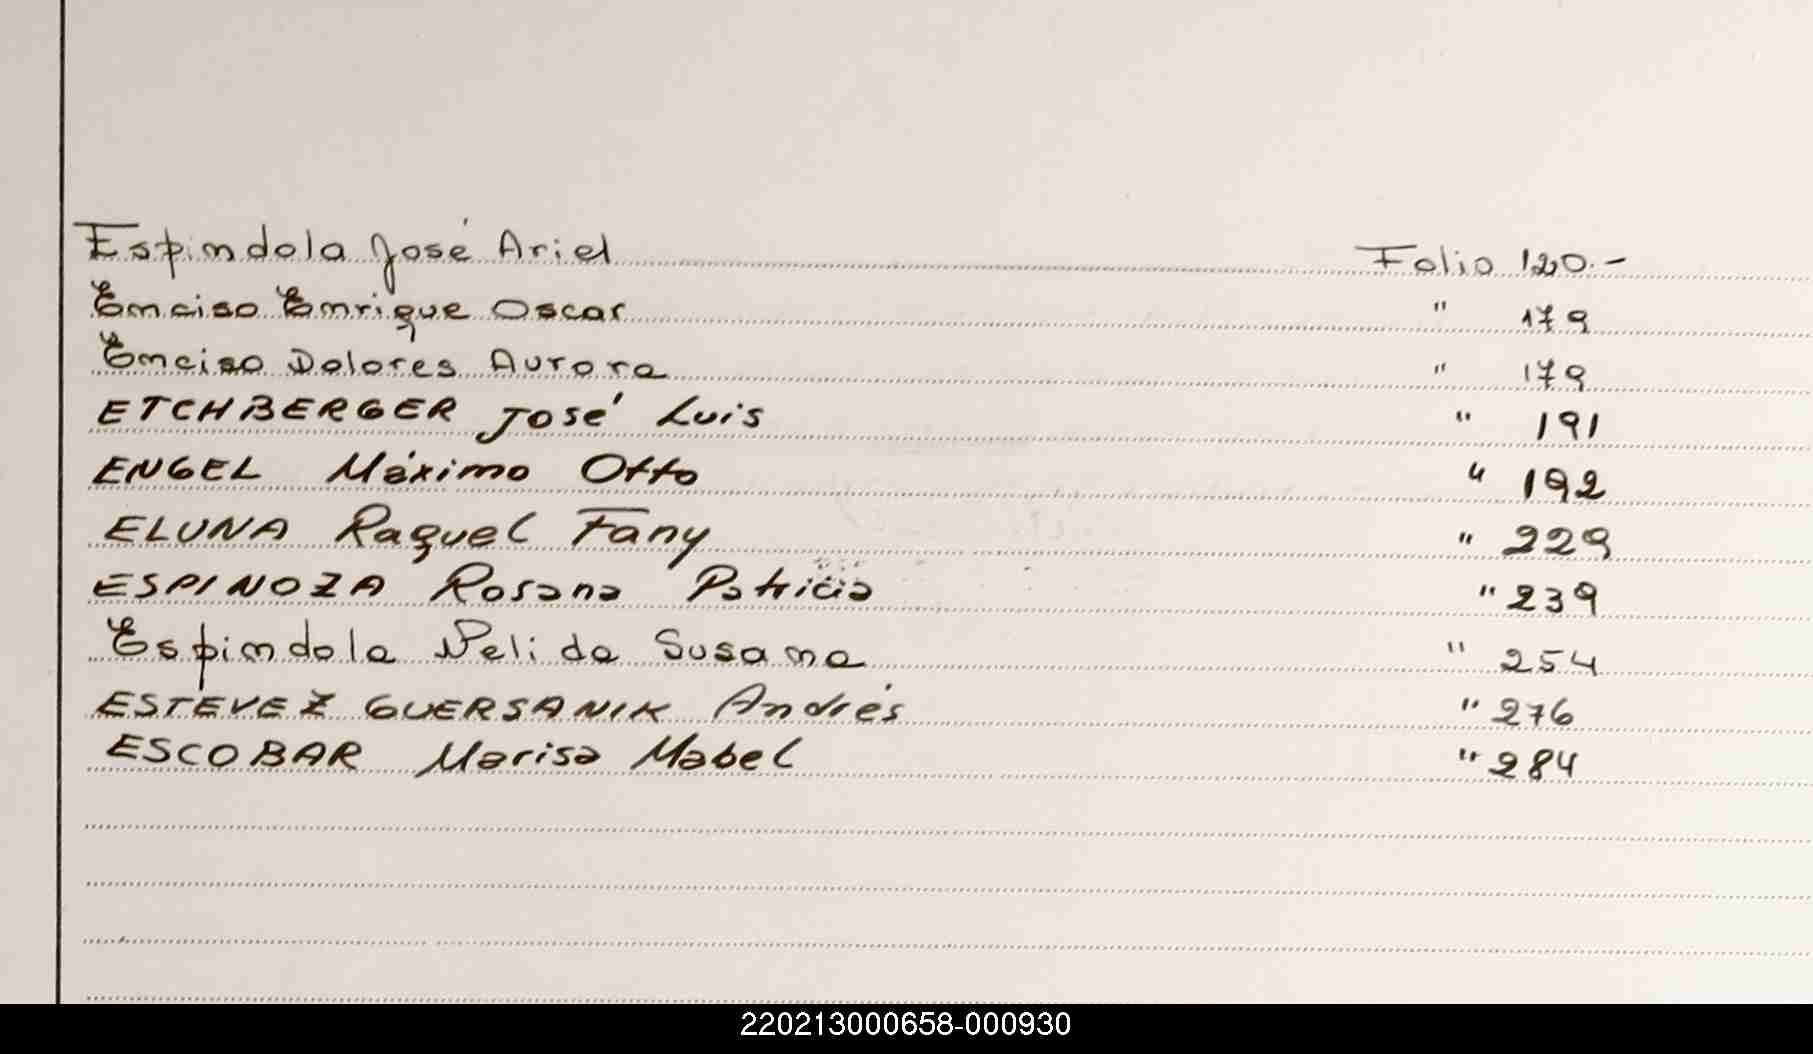 Espindola José Ariel Folio 120.-
Enciso Enrique Oscar " 179
Enciso Dolores Aurora " 179
ETCHBERGER José Luis " 191
ENGEL Máximo Otto " 192
ELUNA Raquel Fany " 229
ESPINOZA Rosana Patricia " 239
Espindola Nelida Susana " 254
ESTEVEZ GUERSANIK Andrés " 276
ESCOBAR Marisa Mabel " 284
220213000658-000930